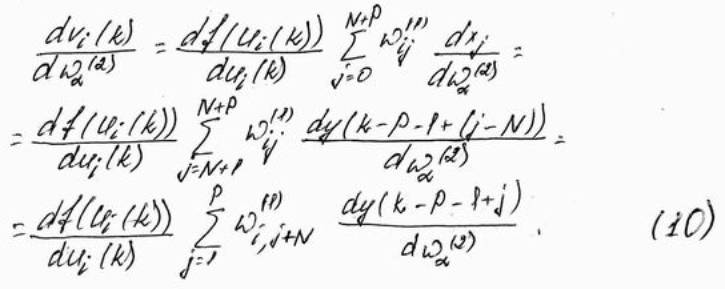 \frac{dv_i(k)}{dw_\alpha^{(2)}} = \frac{df(u_i(k))}{du_i(k)} \sum_{j=0}^{N+P} w_{ij}^{(1)} \frac{dx_j}{dw_\alpha^{(2)}} =
= \frac{df(u_i(k))}{du_i(k)} \sum_{j=N+1}^{N+P} w_{ij}^{(1)} \frac{dy(k-P-1+(j-N))}{dw_\alpha^{(2)}} =
= \frac{df(u_i(k))}{du_i(k)} \sum_{j=1}^{P} w_{i,j+N}^{(1)} \frac{dy(k-P-1+j)}{dw_\alpha^{(2)}} . (10)